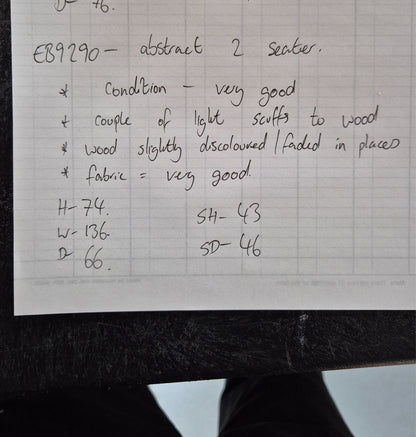 D- 76.
E89290- abstract 2 seater.
* Condition - very good
* couple of light scuffs to wood
* wood slightly discoloured/faded in places
* fabric = very good.
H- 74. SH- 43
W- 136. SD- 46
D- 66.